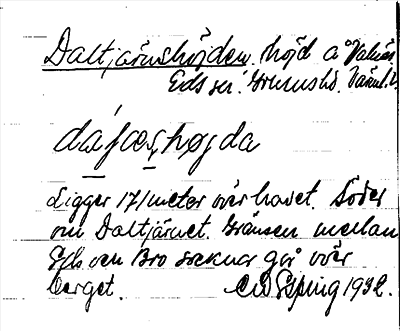 Daltjärnshöjden. höjd å Valnäs
Eds sn. Grums hd. Värml. l.
dáɬæṣhøjda
Ligger 171 meter över havet. Söder
om Daltjärnet. Gränsen mellan
Eds och Bro socknar går över
berget. C W Esping 1932.